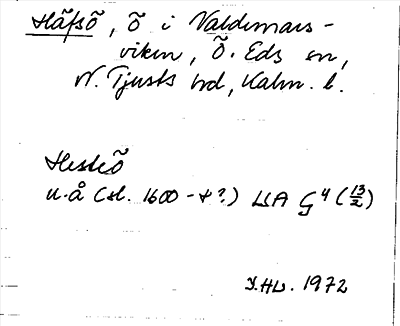 Häfsö, Ö i Valdemars-
viken, Ö. Eds sn,
N. Tjusts hd, Kalm. l.
Hesteö
u.å (sl. 1600-t?) LSA G⁴ (13/2)
1972